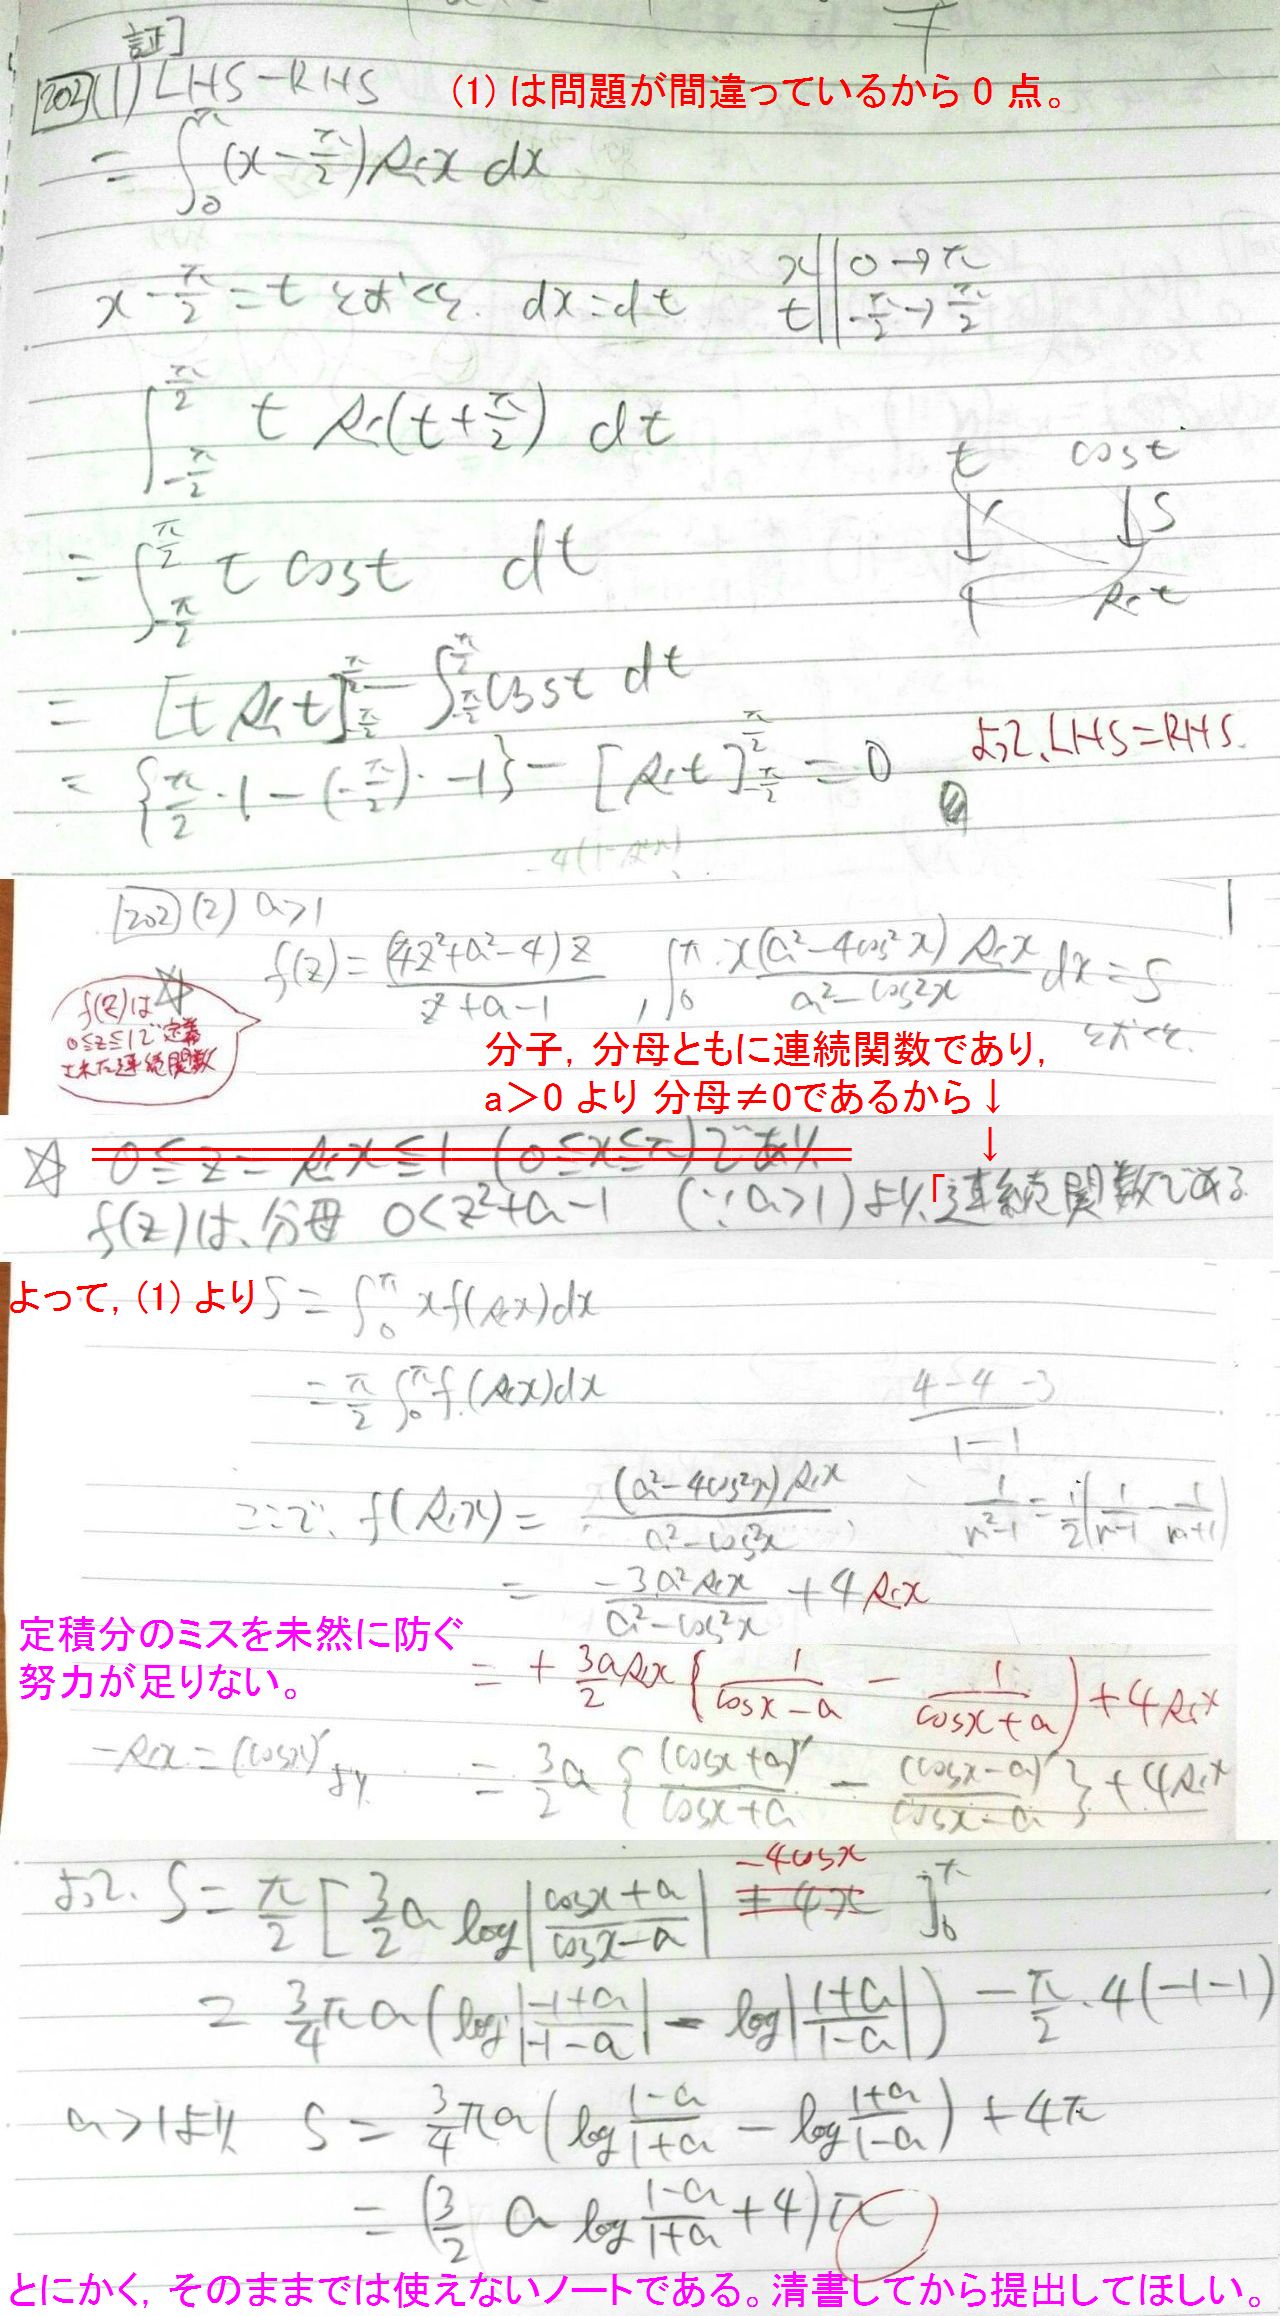 証]
202 (1) LHS-RHS (1) は問題が間違っているから 0 点。
= ∫₀^π (x - π/2) sin x dx
x - π/2 = t とおくと. dx = dt
x || 0 → π
t || -π/2 → π/2
∫_{-π/2}^{π/2} t sin(t + π/2) dt
t cost
= ∫_{-π/2}^{π/2} t cost dt
1 sin t
= [t sin t]_{-π/2}^{π/2} - ∫_{-π/2}^{π/2} cost dt
= {π/2・1 - (-π/2)・-1} - [sin t]_{-π/2}^{π/2} = 0
よって、LHS=RHS.
202 (2) a>1
f(z) = (4z²+a²-4)z / z+a-1 , ∫₀^π x(a²-4cos²x) sin x / a²-cos²x dx = S
とおくと.
f(z)は☆
0≦z≦1で定義
された連続関数
分子，分母ともに連続関数であり，
a＞0 より 分母≠0であるから↓
↓
☆ 0≦z= sin x ≦1 (0≦x≦π) であり
f(z)は、分母 0<z²+a-1 (∵a>1) より、「連続関数である
よって，(1) より S = ∫₀^π x f(sin x)dx
= π/2 ∫₀^π f(sin x)dx
4-4-3 / 1-1
ここで、f(sin x) = (a²-4cos²x) sin x / a²-cos²x
1/n²-1 = 1/2(1/n-1 - 1/n+1)
= -3a² sin x / a²-cos²x + 4 sin x
定積分のミスを未然に防ぐ
努力が足りない。
= + 3a sin x / 2 { 1/cosx-a - 1/cosx+a ) + 4 sin x
-sin x = (cosx)' より
= 3/2 a { (cosx+a)'/cosx+a - (cosx-a)'/cosx-a } + 4 sin x
よって、S = π/2 [ 3/2 a log|cosx+a / cosx-a| -4cosx + 4x ]₀^π
= 3/4 πa (log|-1+a / -1-a| - log|1+a / 1-a|) - π/2・4(-1-1)
a>1より S = 3/4 πa (log 1-a/1+a - log 1+a/1-a) + 4π
= (3/2 a log 1-a/1+a + 4)π
とにかく，そのままでは使えないノートである。清書してから提出してほしい。